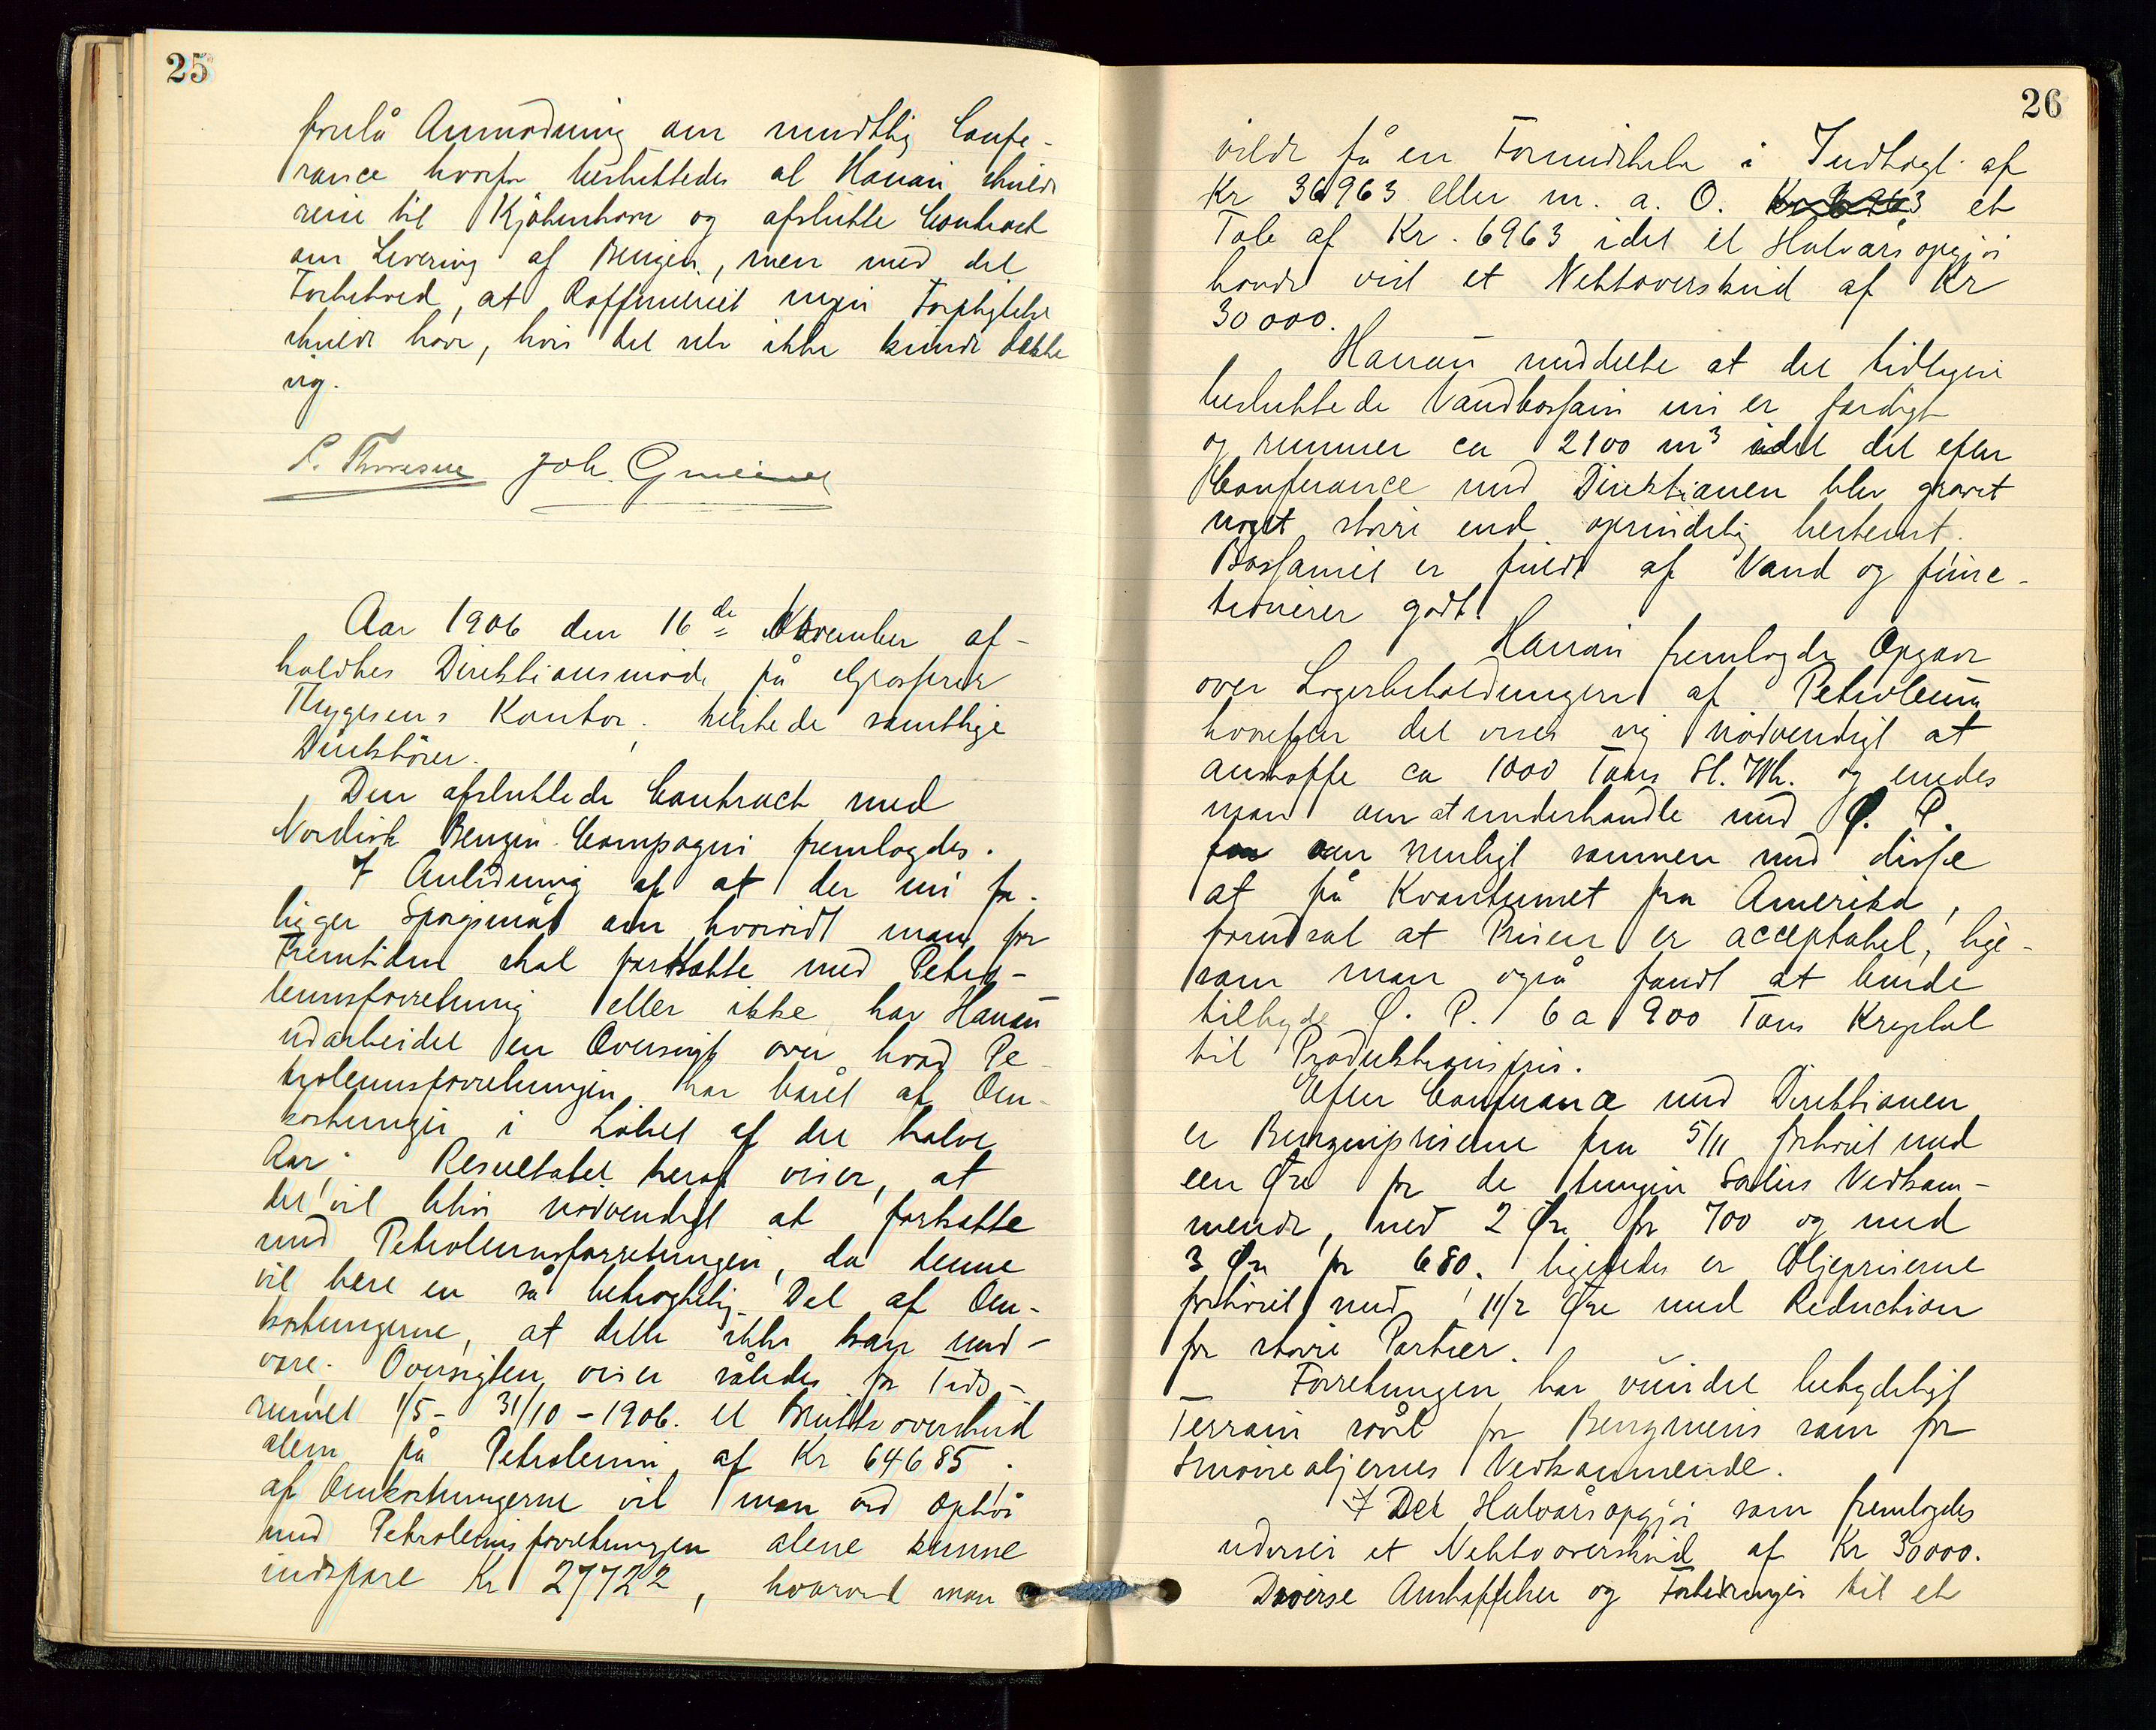 25
forelå Anmodning om mundtlig Confe-
rance hvorfor besluttedes at Hanan skulde
reise til Kjöbenhavn og afslutte Contract
om Levering af Benzin, men med det
Forbehold, at Raffineriet ingen Forpligtelse
skulde have, hvis det selv ikke kunde dække
sig.
P. Thoresen Joh.
Aar 1906 den 16de November af-
holdtes Direktionsmöde på Grosserer
Thygesens Kontor. tilstede samtlige
Direktörer.
Den afsluttede Contract med
Nordisk Benzin Compagni fremlagdes.
I Anledning af at der nu fo-
ligger Spörgsmål om hvorvidt man for
Fremtiden skal fortsætte med Petro-
leumsforretning eller ikke har Hanan
udarbeidet en Oversigt over hvad Pe-
troleumsforretningen har båret af Om-
kostninger i Löbet af det halve
Aar. Resultatet heraf viser, at
det vil blive nödvendigt at fortsætte
med Petroleumsforretningen, da denne
vil bære en så betragtelig Del af Om-
kostningerne, at dette ikke kan und-
være. Oversigten viser således for Tids-
rummet 1/5 - 31/10 - 1906. et Bruttooverskud
alene på Petroleum af Kr 64685.
af Omkostningerne vil man ved Ophör
med Petroleumsforretningen alene kunne
indspare Kr 27722, hvorved man
26
vilde få en Formindskelse i Indtægt af
Kr 36963 eller m. a. O. et
Tab af Kr. 6963 idet et Halvårsopgjör
havde vist et Nettooverskud af Kr
30000.
Hanan meddelte at det tidligere
besluttede Vandbassain nu er færdigt
og rummer ca 2100 m³ idet det efter
Conferance med Direktionen blev gravet
noget större end oprindelig bestemt.
Bassainet er fuldt af Vand og func-
tionerer godt.
Hanan fremlagde Opgave
over Lagerbeholdningen af Petroleum
hvorefter det viser sig nödvendigt at
anskaffe ca 1000 Tons St. Wh. og enedes
man om at underhandle med Ø. P.
om muligt sammen med disse
at få Kvantumet fra Amerika,
forudsat at Prisen er acceptabel, lige-
som man også fandt at burde
tilbyde Ø. P. 6 a 900 Tons Krystal
til Produktionspris.
Efter Conferance med Direktionen
er Benzinpriserne fra 5/11 forhöiet med
een Øre for de tungere Sorters Vedkom-
mende, med 2 Øre for 700 og med
3 Øre for 680. ligeledes er Oljepriserne
forhöiet med 1 1/2 Øre med Reduction
for större Partier.
Forretningen har vundet betydeligt
Terrain såvel for Benzinens som for
Smöreoljernes Vedkommende.
I Det Halvårsopgjör som fremlagdes
udviser et Nettooverskud af Kr 30000.
Diverse Anskaffelser og Forbedringer til et